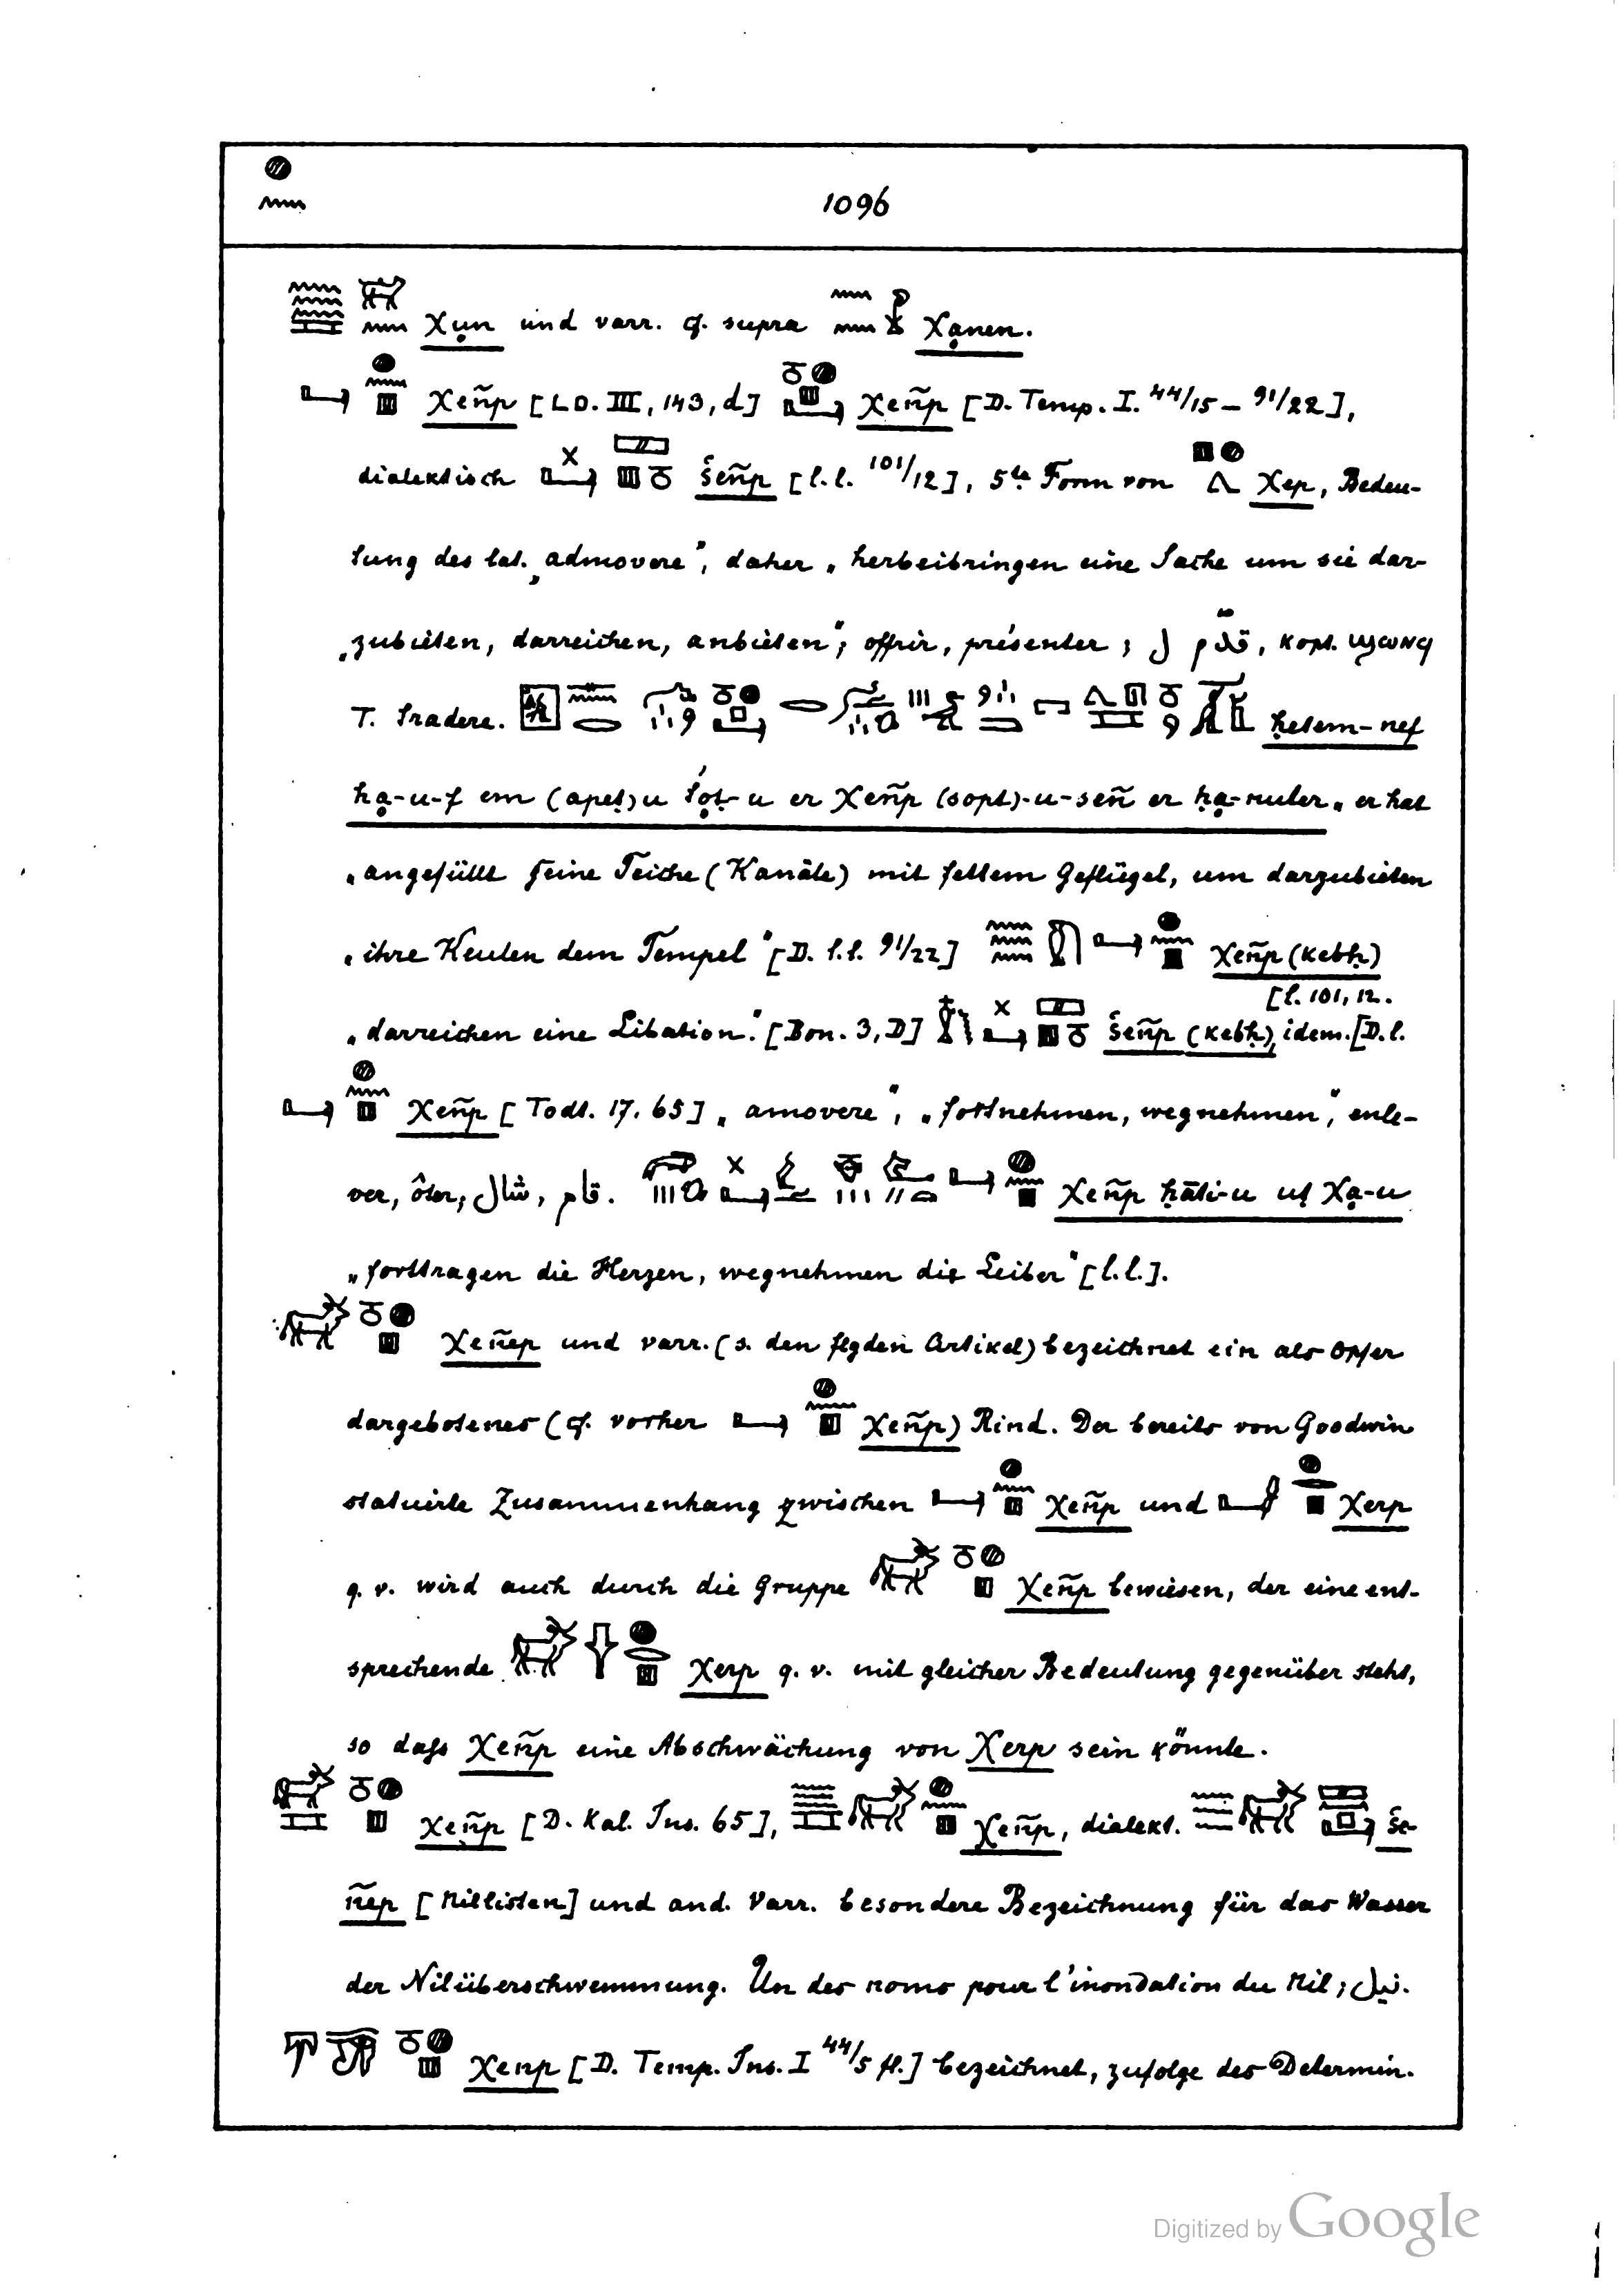 1096
χụn und varr. cf. supra χạnen.
χeñp [LD. III, 143, d] χeñp [D. Temp. I. 44/15 – 91/22],
dialektisch šeñp [l.l. 101/12], 5te Form von χep, Bedeu-
tung des lat. „admovere”, daher „herbeibringen eine Sache um sie dar-
„zubieten, darreichen, anbieten”; offrir, présenter; قدّم ل, kopt. ϣⲱⲛϥ
T. tradere. ḥetem-nef
hạ-u-f em (apeṭ)u u er χeñp (sopt)-u-señ er ḥạ-nuter „er hat
„angefüllt seine Teiche (Kanäle) mit fettem Geflügel, um darzubieten
„ihre Keulen dem Tempel” [D. l.l. 91/22] χeñp (kebḥ)
[l. 101, 12.
„darreichen eine Libation”. [Bon. 3, D] šeñp (kebḥ), idem. [D. l.
χeñp [Todt. 17. 65] „amovere”, „fortnehmen, wegnehmen”, enle-
ver, ôter; شال, قام. χeñp ḥāti-u uṭ χạ-u
„forttragen die Herzen, wegnehmen die Leiber” [l.l.].
χeñep und varr. (s. den flgden Artikel) bezeichnet ein als Opfer
dargebotenes (cf. vorher χeñp) Rind. Der bereits von Goodwin
statuirte Zusammenhang zwischen χeñp und χerp
q. v. wird auch durch die Gruppe χeñp bewiesen, der eine ent-
sprechende χerp q. v. mit gleicher Bedeutung gegenüber steht,
so daſs χeñp eine Abschwächung von χerp sein könnte.
χeñp [D. Kal. Ins. 65], χeñp, dialekt. še-
ñep [Nillisten] und and. Varr. besondere Bezeichnung für das Wasser
der Nilüberschwemmung. Un des noms pour l'inondation du Nil; نيل.
χenp [D. Temp. Ins. I 44/5 fl.] bezeichnet, zufolge des Determin.
Digitized by Google